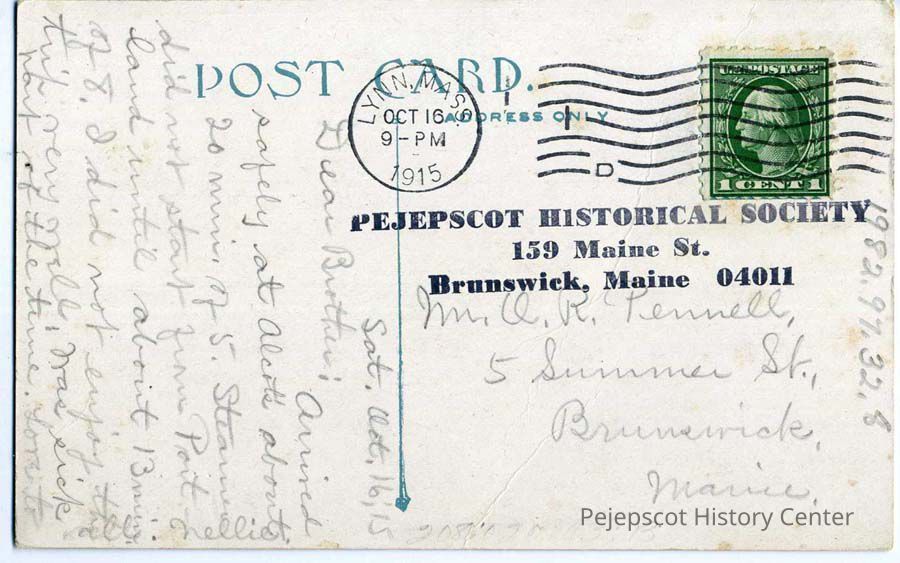 POST CARD.
ADDRESS ONLY
LYNN, MASS.
OCT 16
9-PM
1915
D
U.S. POSTAGE
1 CENT 1
PEJEPSCOT HISTORICAL SOCIETY
159 Maine St.
Brunswick, Maine 04011
Mr. A. R. Pennell,
5 Summer St.,
Brunswick,
Maine.
1982.97.32.8
Sat. Oct. 16, 15
Dear Brother; Arrived
safely at Alcott about
20 min. of 5. Steamer
did not start from Port
land until about 13 min
of 8. I did not enjoy the
trip very well; was sick
part of the time.
Nellie
Pejepscot History Center